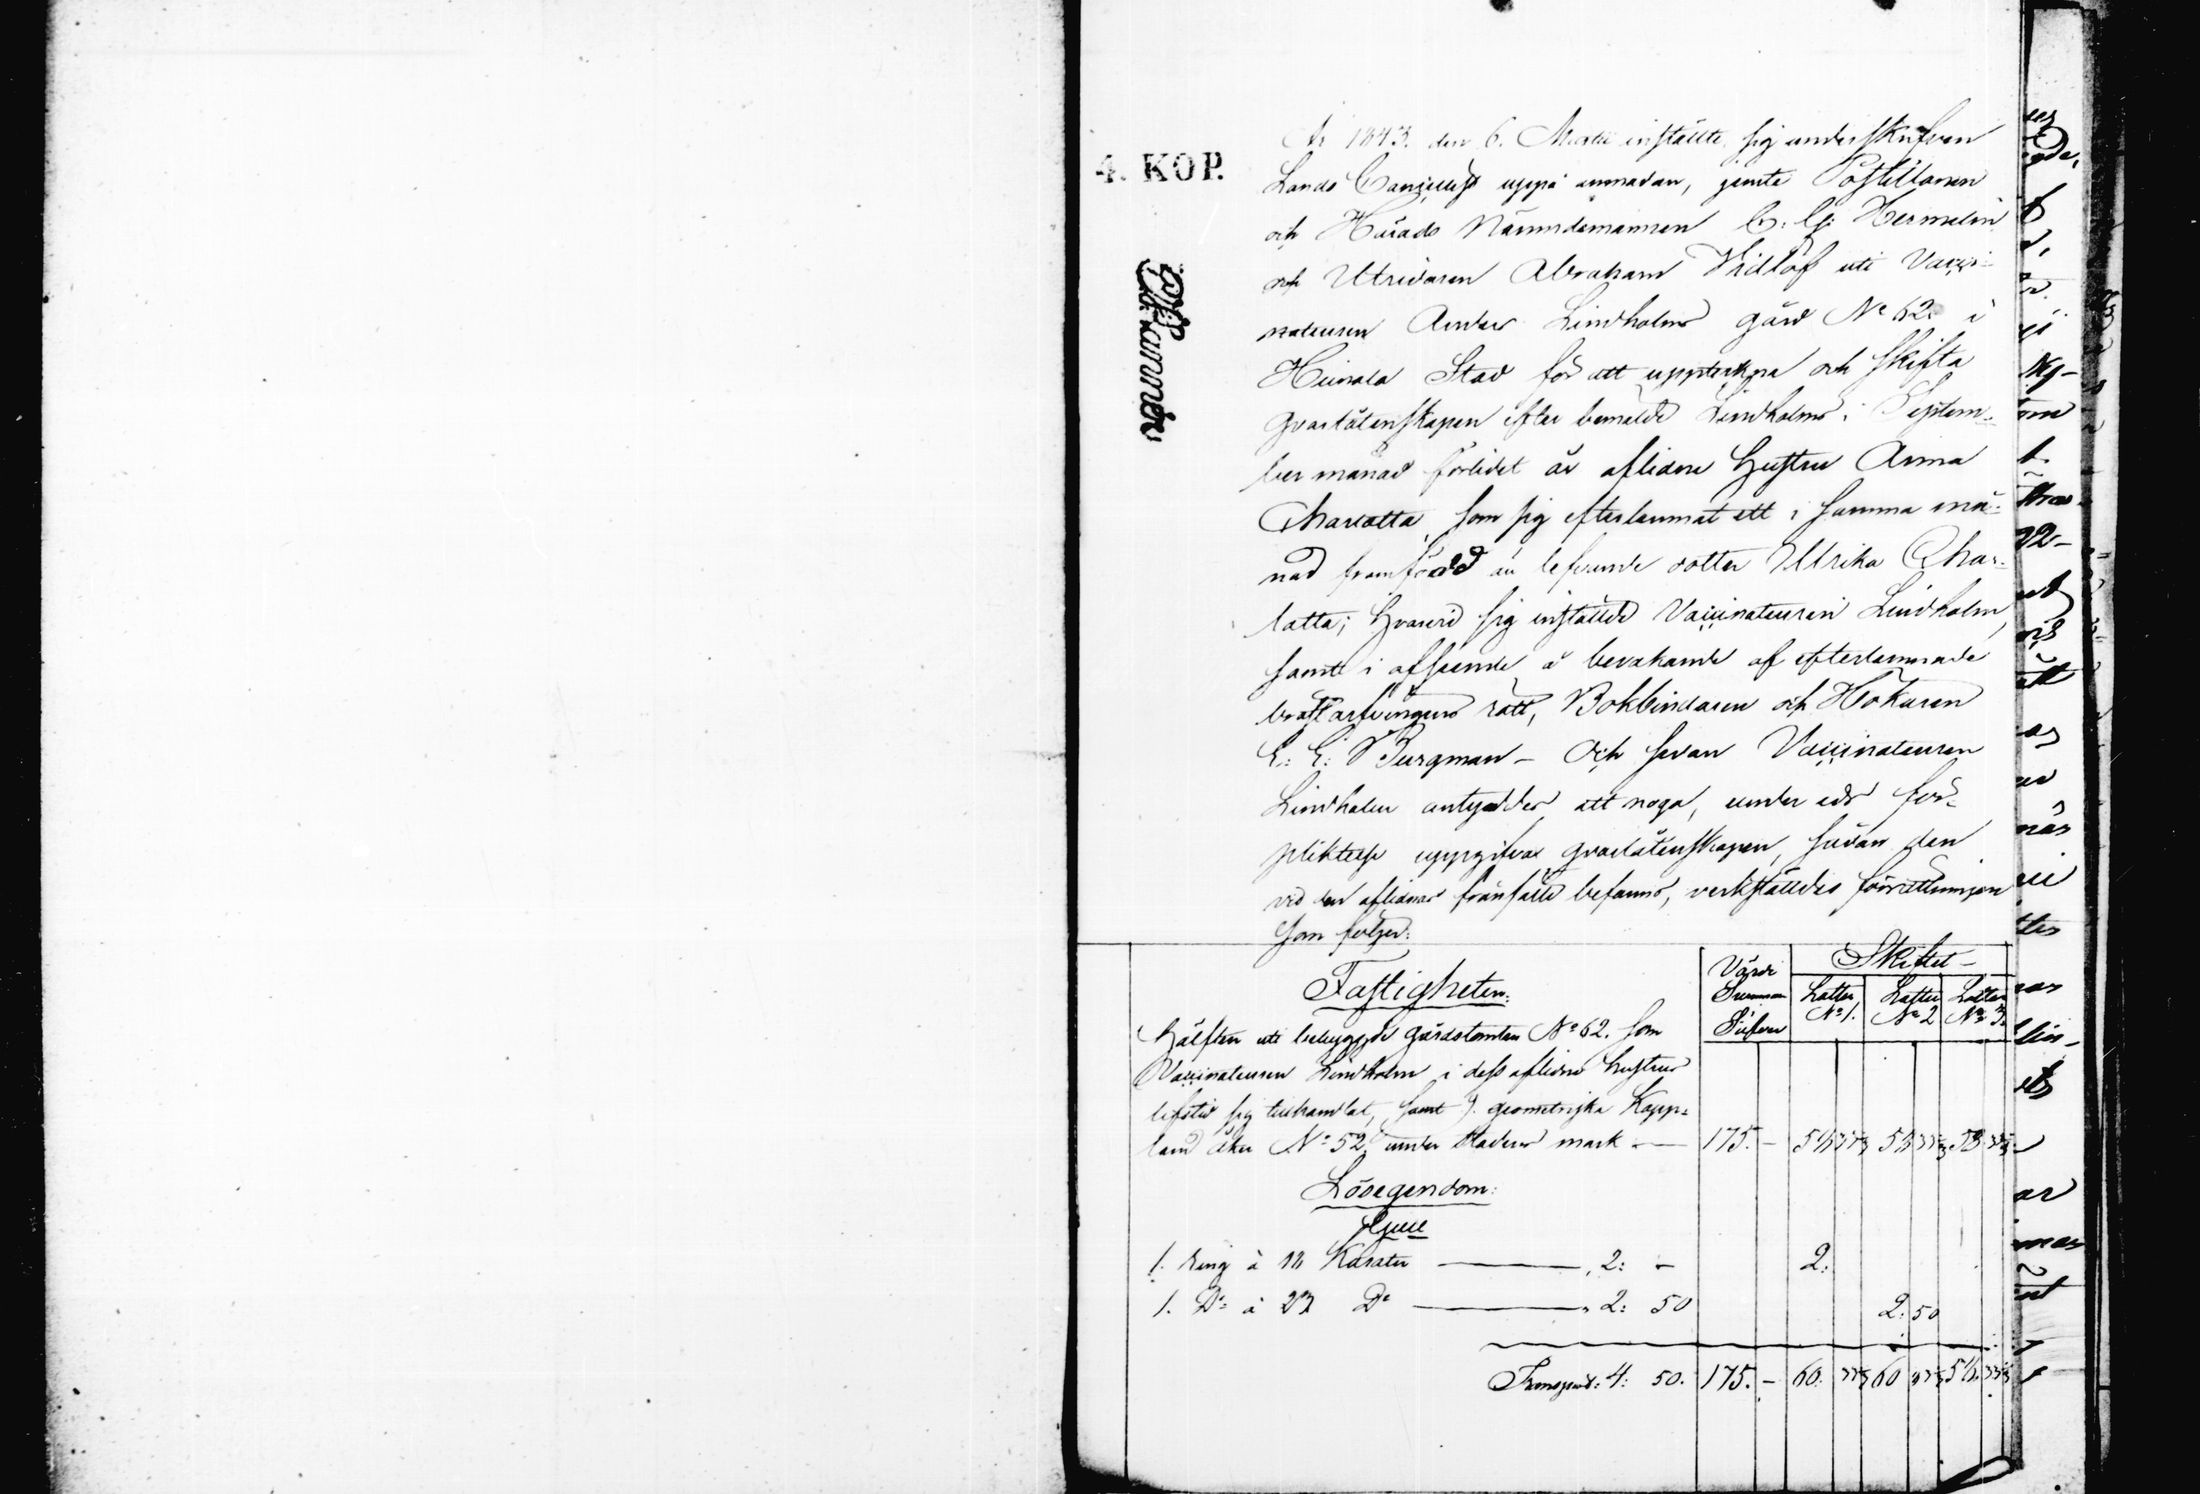 4. KOP.
År 1843. den 6. Martii instälte sig underskrifven
Lands Cancellist uppå anmodan, jemte Postillonen
och Härads Nämndemannen C: G: Hermelin
och Utridaren Abraham Vidlöf uti Vacci-
nateuren Anders Lindholms gård No 62. i
Heinola Stad för att uppteckna och skifta
qvarlåtenskapen efter bemälde Lindholms i Septem-
ber månad förlidet år aflidne hustru Anna
Charlotta, som sig efterlemnat ett i samma må-
nad framfödd än lefvande dotter Ulrika Char-
lotta; hvarvid sig inställde Vaccinateuren Lindholm,
samt i afseende å bevakande af efterlemnade
bröstarfvingens rätt, Bokbindaren och Hökaren
E: E: Bergman – Och sedan Vaccinateuren
Lindholm antyddes att noga, under eds för-
pliktelse uppgifva qvarlåtenskapen, sådan den
vid den aflidnas frånfälle befanns, verkställdes förrättningen
som följer:
Fastigheten:
Värde Summan Silfver
Skiftet
Lotten No 1. Lotten No 2 Lotten No 3.
Hälften uti bebyggde gårdstomten No 62. som
Vaccinateuren Lindholm i dess aflidne hustrus
lifstid sig tillhandlat, samt geometriska Kapp-
land åker No 52. under stadens mark — 175. – 58 33⅓ 58 33⅓ 58 33⅓
Lösegendom:
Guld
1. Ring à 18 Karater — 2: – 2.
1. Do à Do — 2: 50 2. 50
Transport: 4: 50. 175. – 60. 33⅓ 60 83⅓ 58. 33⅓